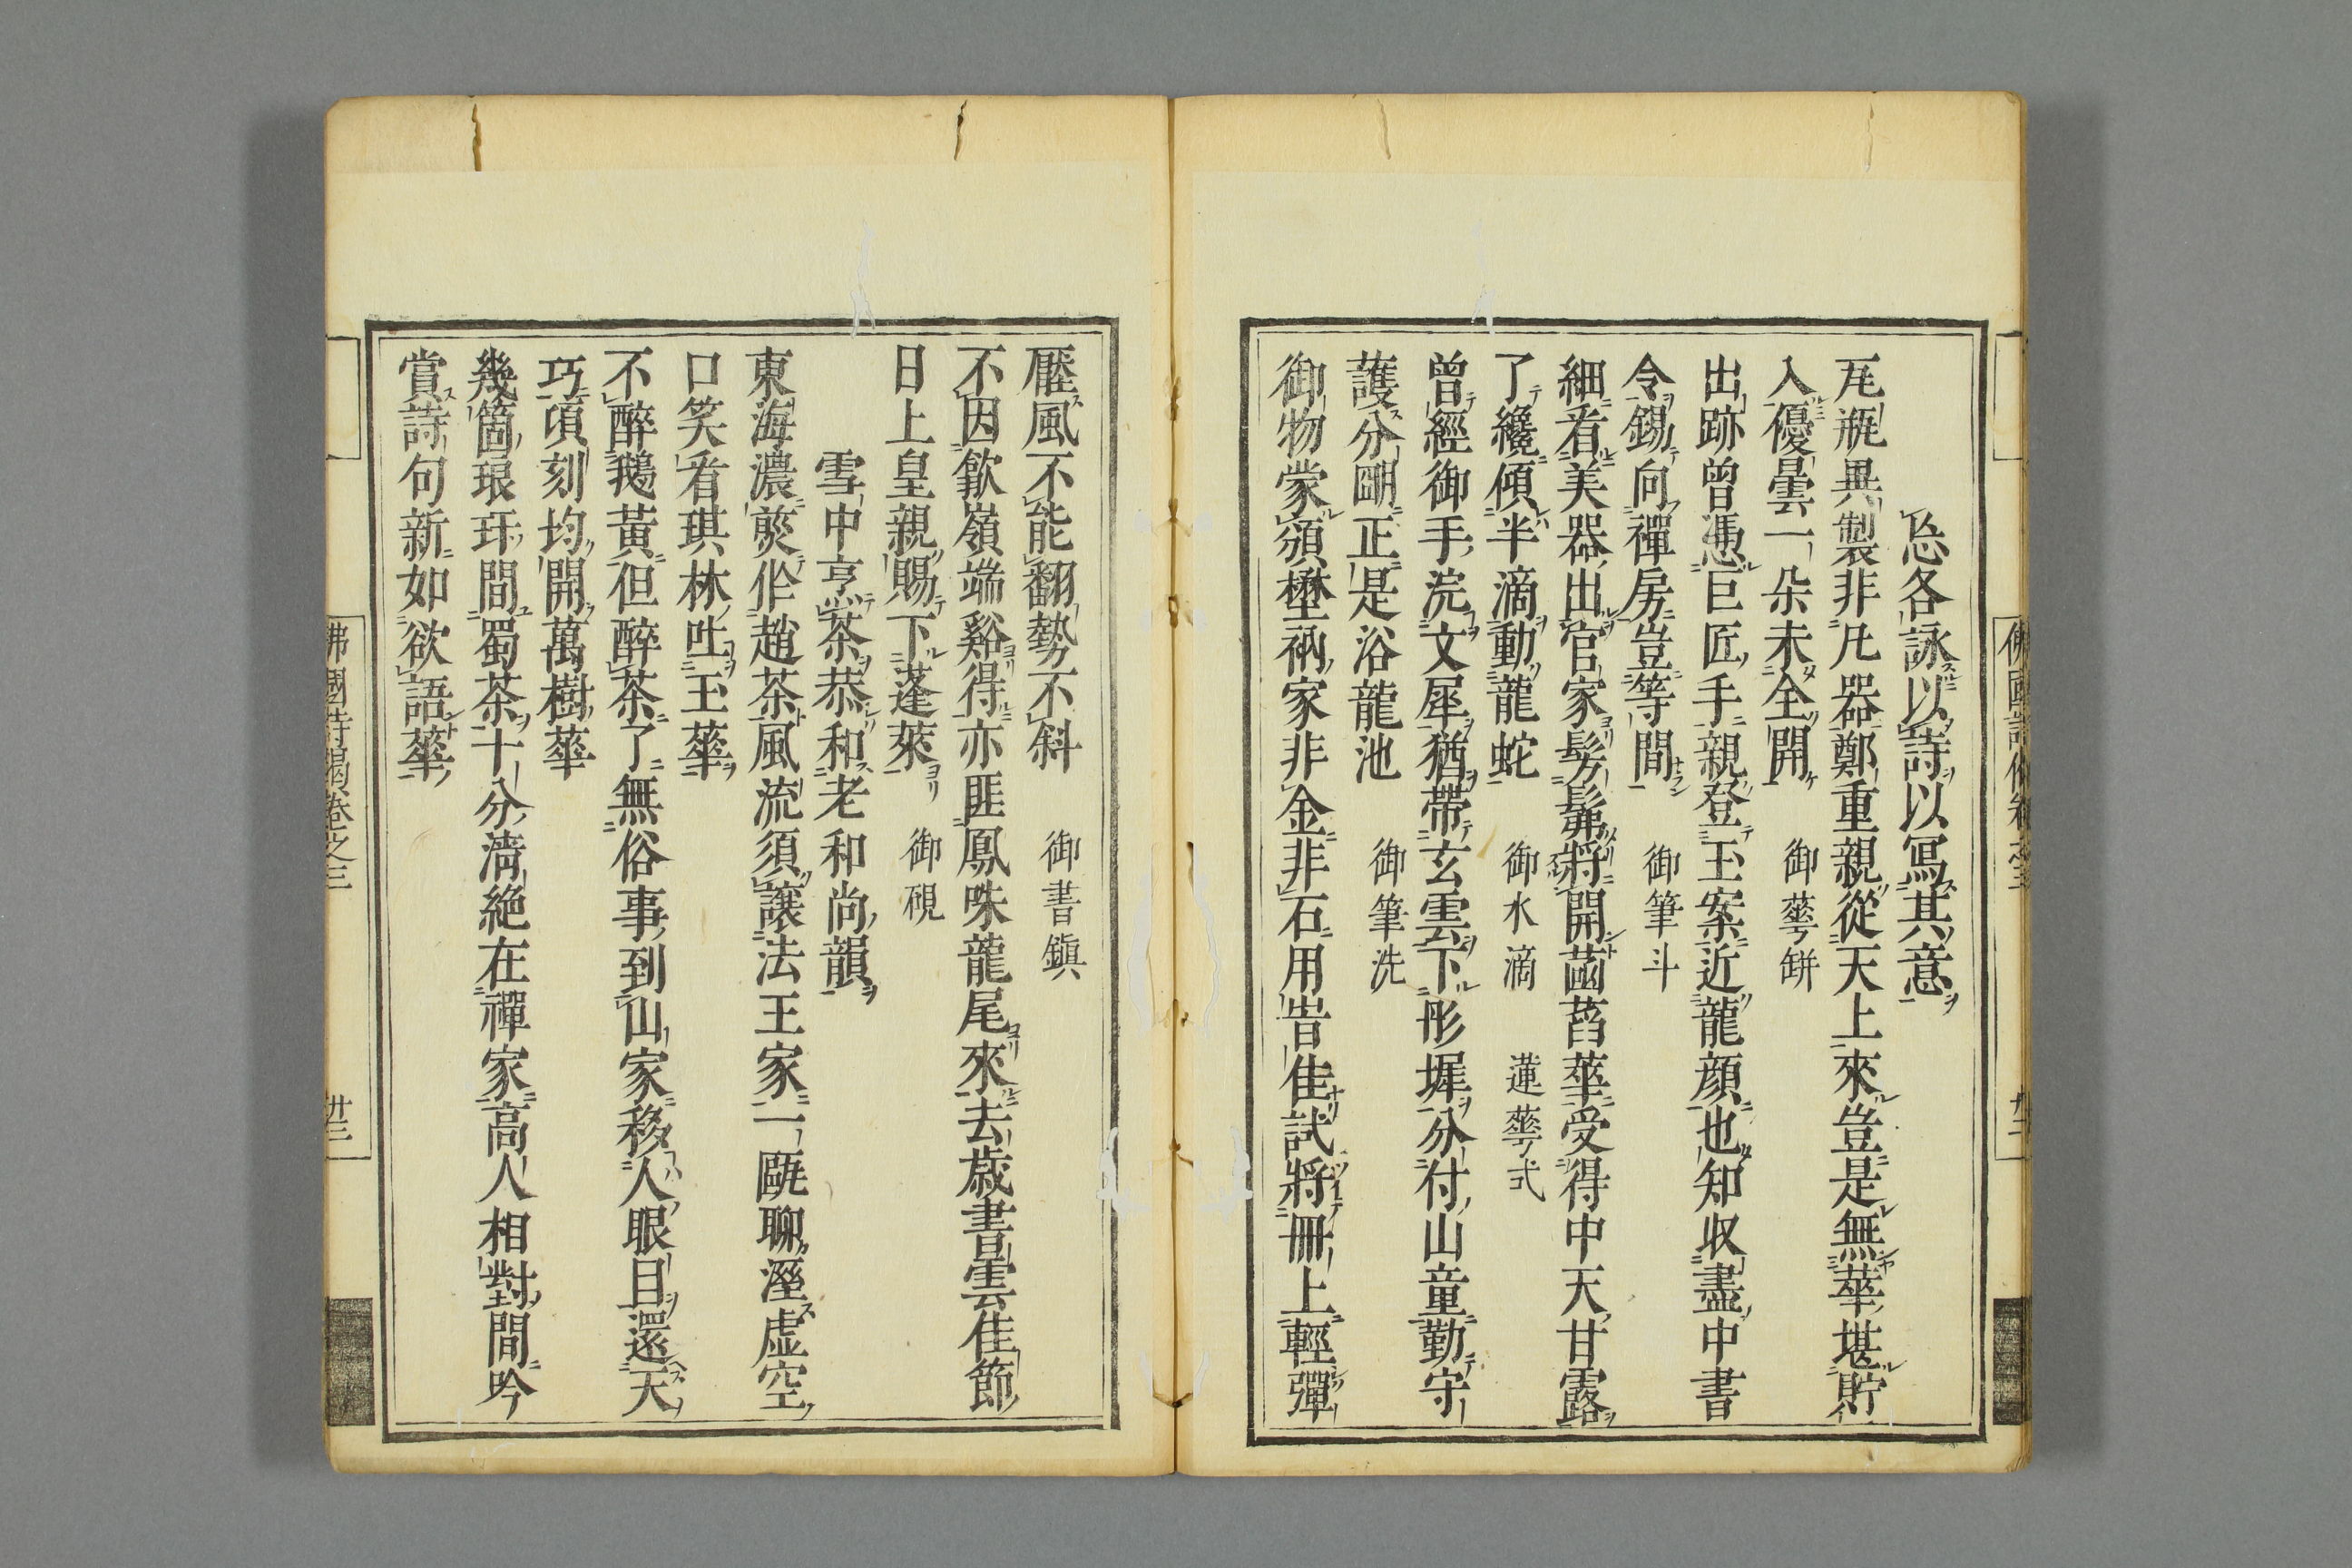 恙各詠以詩以寫其意
瓦瓶異製非凡器鄭重親從天上來豈是無蕐堪貯
入優曇一朵未全開　御蕐缾
出跡曾憑巨匠手親登玉案近龍顔也知收盡中書
令錫向禪房豈等間　御筆斗
細看美器出官家髣髴將開菡萏蕐受得中天甘露
了纔傾半滴動龍蛇　御水滴　蓮蕐式
曾經御手浣文犀猶帶玄雲下彤墀分付山童勤守
護分明正是浴龍池　御筆洗
御物蒙頒壄衲家非金非石用皆佳試將冊上輕彈
壓風不能翻勢不斜　御書鎭
不因歙嶺端谿得亦匪鳳咮龍尾來去歳書雲佳節
日上皇親賜下蓬萊　御硯
雪中烹茶恭和老和尚韻
東海濃煎作趙茶風流須讓法王家一甌聊溼虛空
口笑看琪林吐玉蕐
不醉鵝黃但醉茶了無俗事到山家移人眼目還天
巧頃刻均開萬樹蕐
幾箇琅玕間蜀茶十分淸絶在禪家高人相對間吟
賞詩句新如欲語蕐
佛國詩偈卷之三
廿三